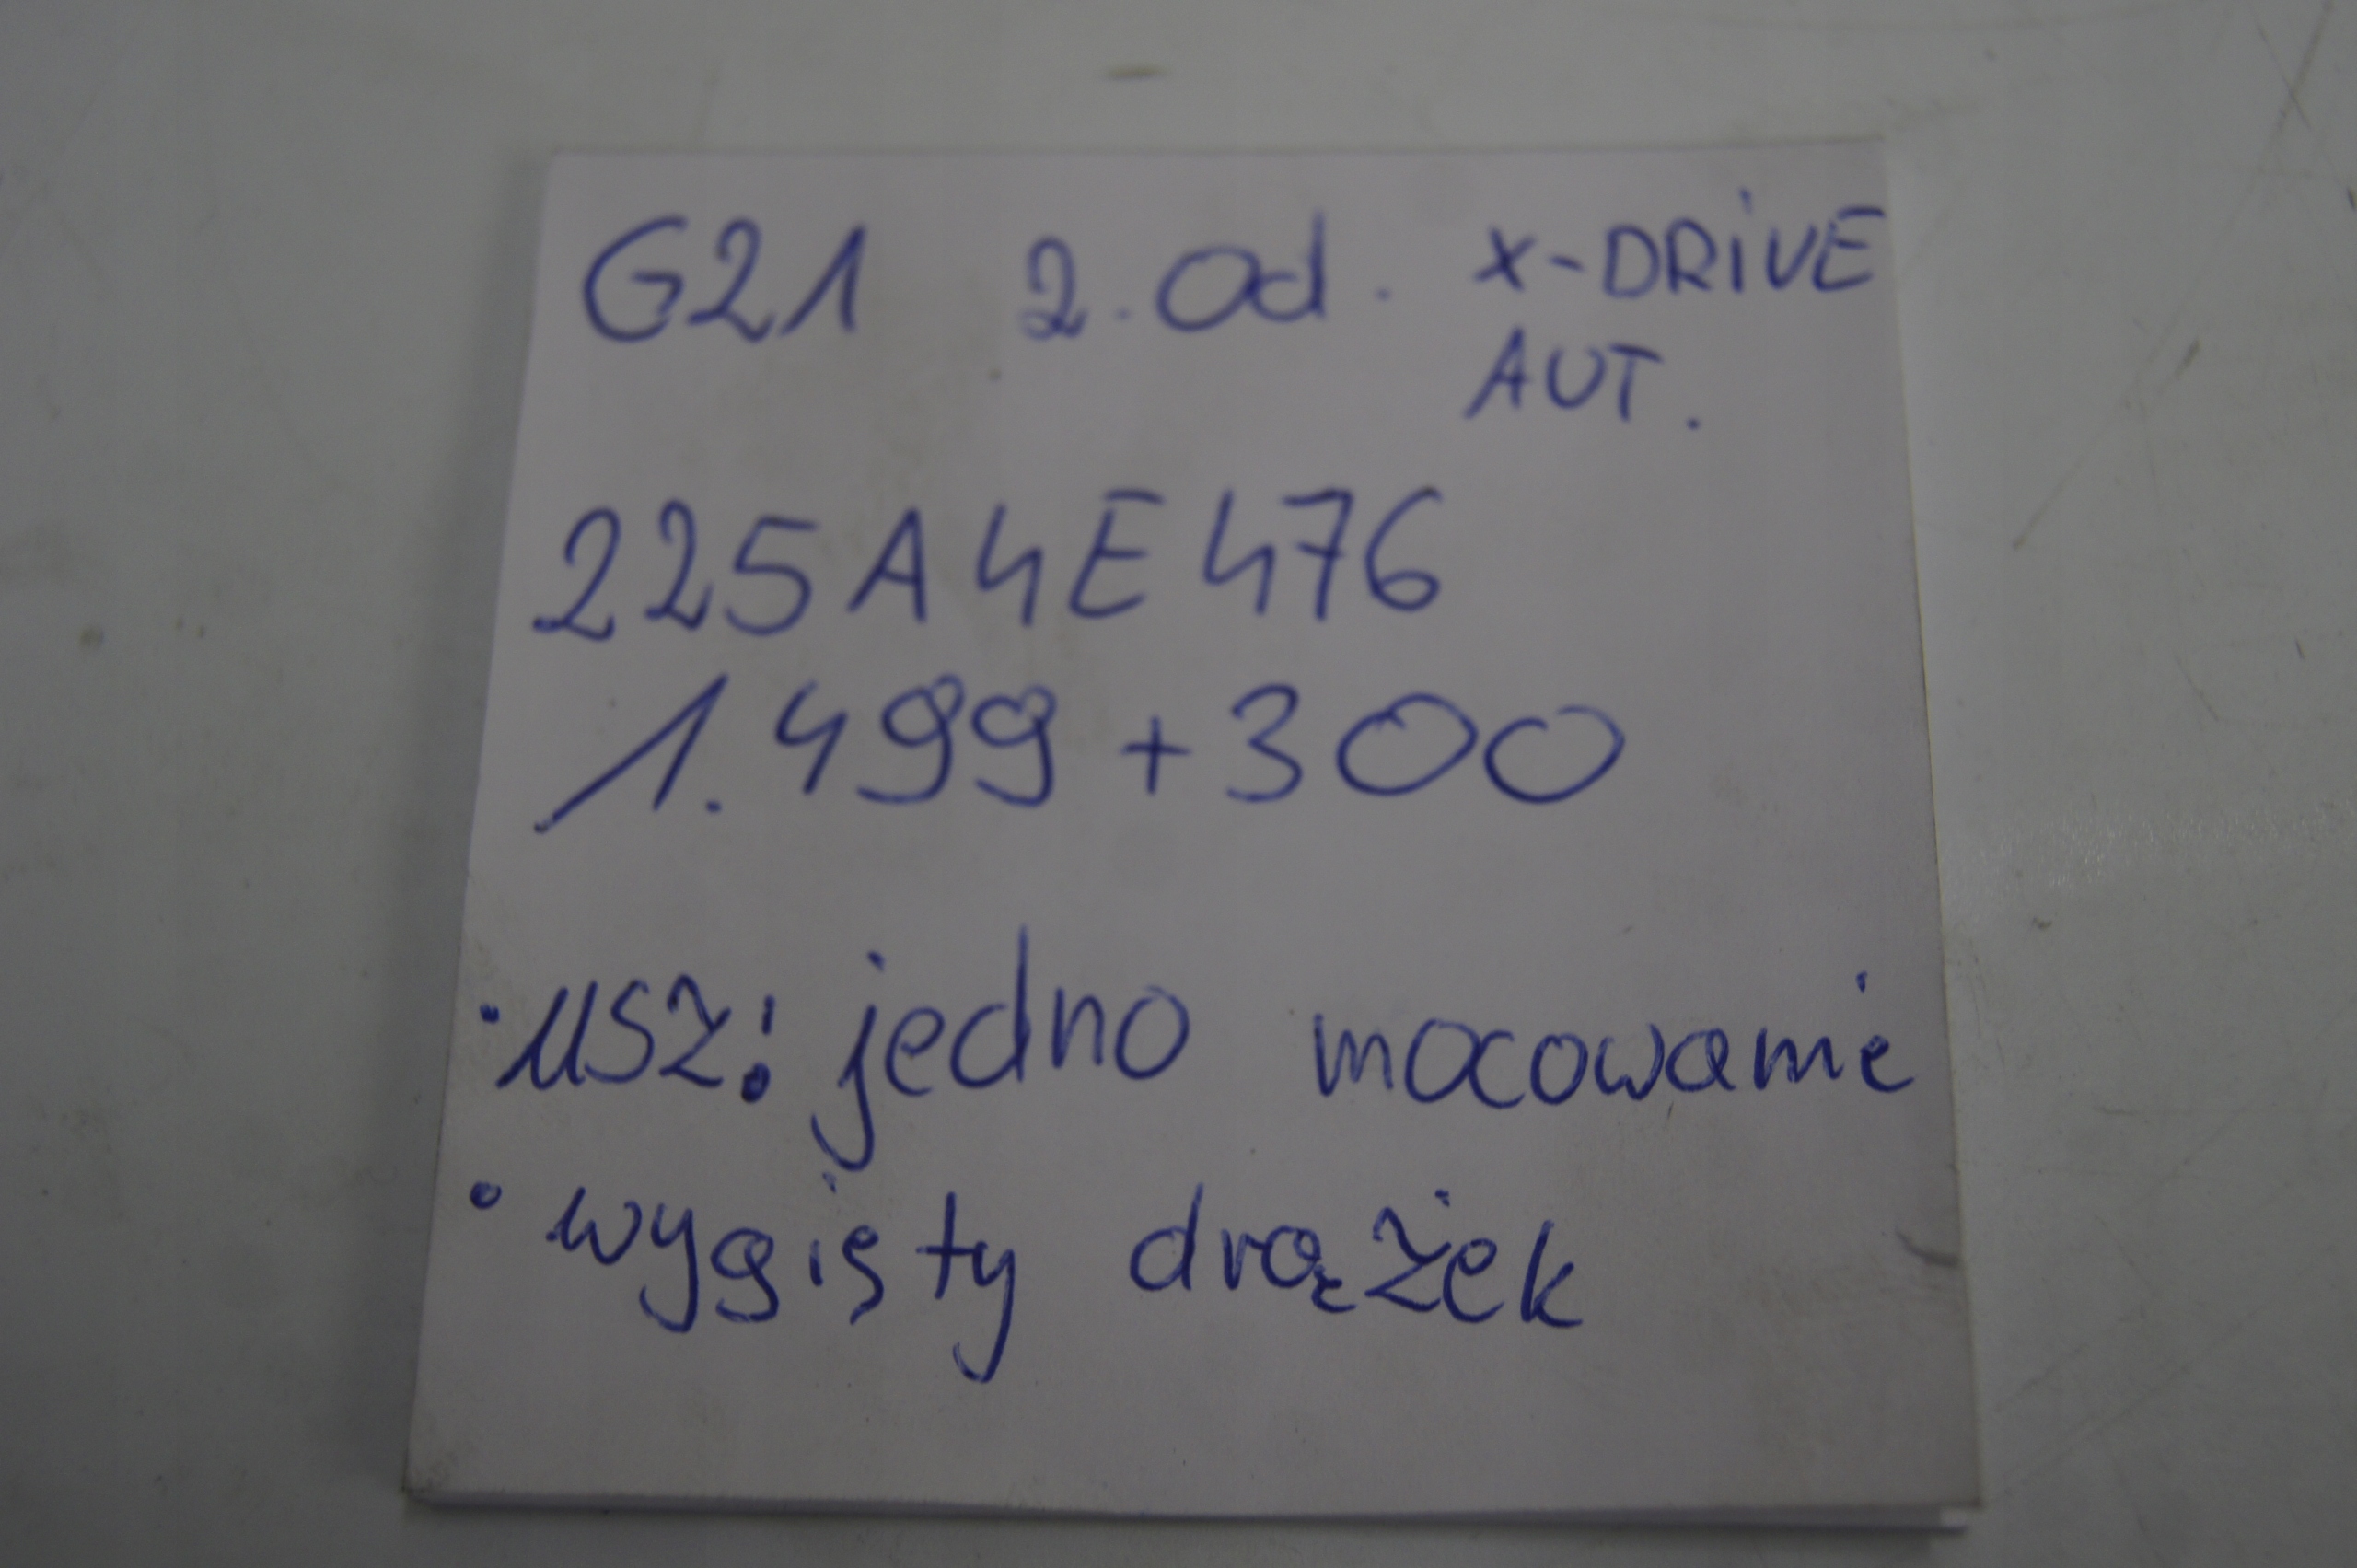 G21 2.0d. X-DRiVE
AUT.
225A4E476
1.499+300
• USZ: jedno mocowanie
• wygięty drążek